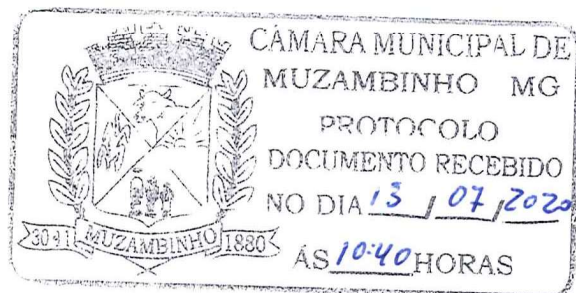 CÂMARA MUNICIPAL DE
MUZAMBINHO MG
PROTOCOLO
DOCUMENTO RECEBIDO
NO DIA 13 / 07 / 2020
ÁS 10:40 HORAS
MUZAMBINHO 1880